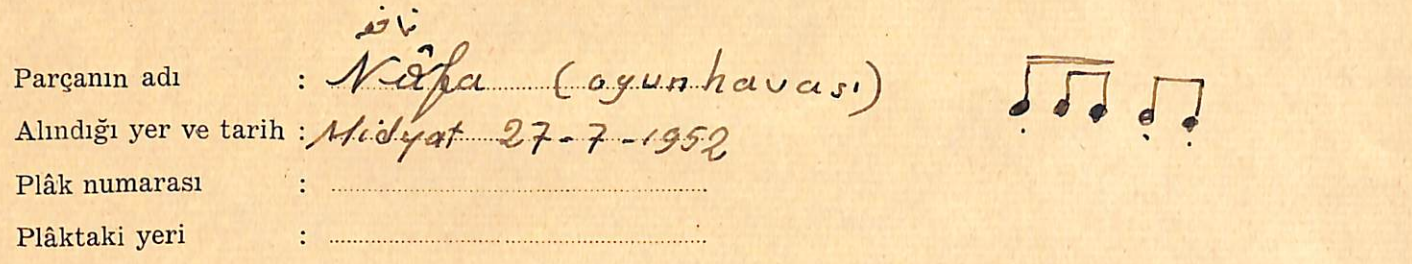 Parçanın adı : Nâfa (oyun havası)
Alındığı yer ve tarih : Midyat 27-7-1952
Plâk numarası :
Plâktaki yeri :